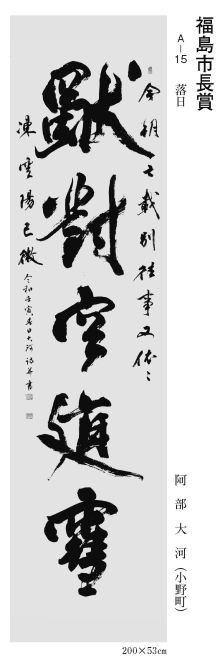 福島市長賞
A－15　落日
阿部大河（小野町）
今朝七載別往事又依〻
默對空庭雪
凍雲陽已微
令和壬寅春日大河詩并書
200×53㎝